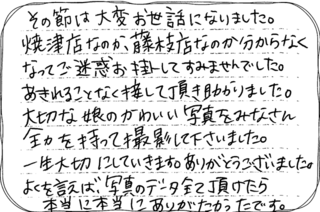 その節は大変お世話になりました。
焼津店なのか、藤枝店なのか分からなく
なってご迷惑お掛けしてすみませんでした。
あきれることなく接して頂き助かりました。
大切な娘のかわいい写真をみなさん
全力を持って撮影して下さいました。
一生大切にしていきます。ありがとうございました。
よくを言えば写真のデータ全て頂けたら
本当に本当にありがたかったです。